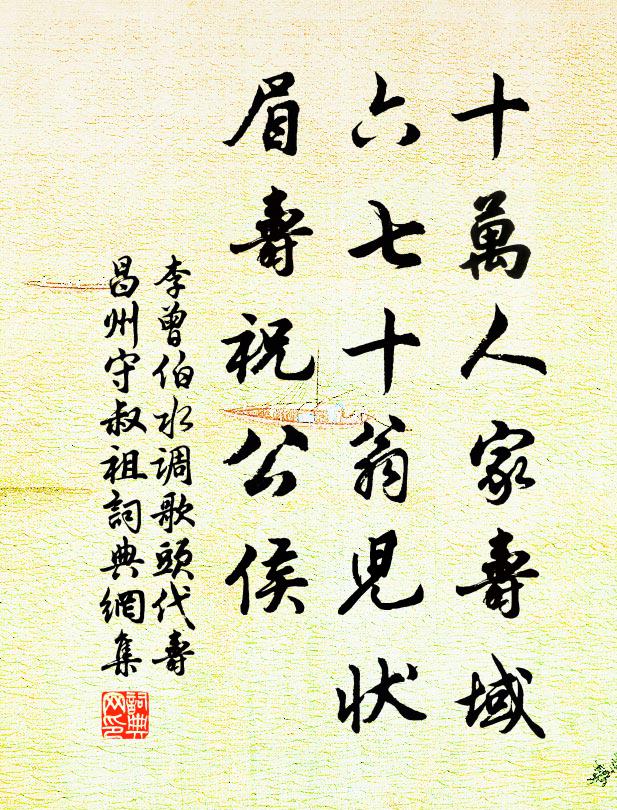 十萬人家壽域
六七十翁兒状
眉壽祝公侯
李曾伯水调歌頭代壽
昌州守叔祖詞典網集
詞典网印